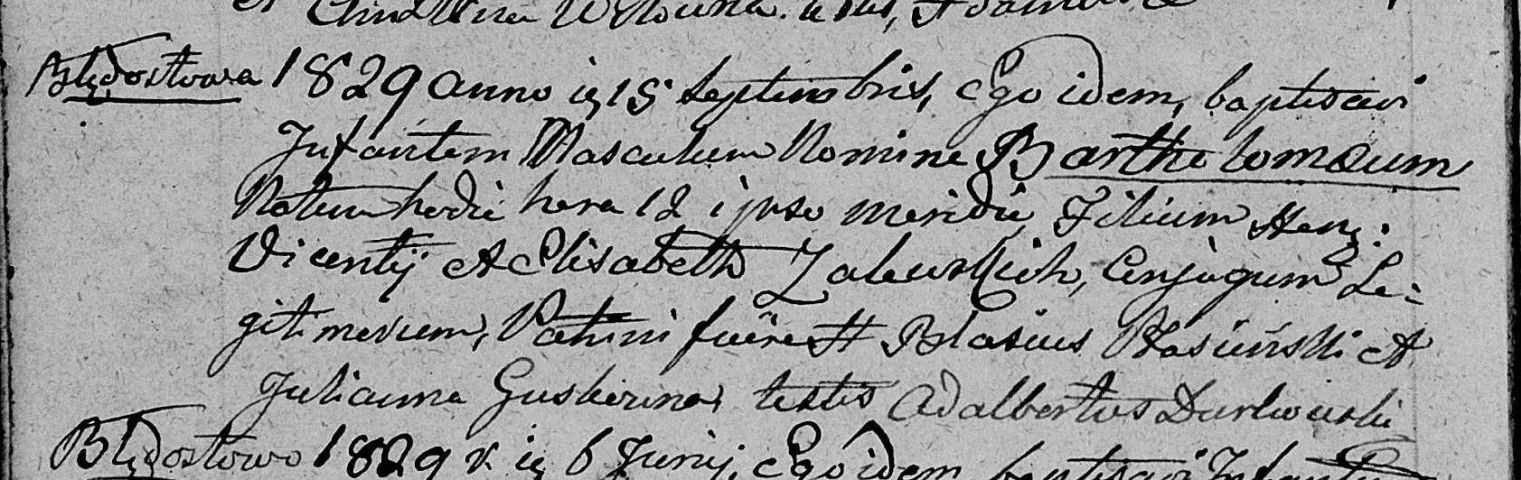 Błędostowa 1829 anno ię 15 Septembris, Ego idem, baptisavi
Infantem Masculum Nomine Bartholomæum
Natum hodie hora 12 ipso meridie, Filium
Vicentij et Elisabeth Zaleuskich, Conjugum Le-
gitimorum, Patrini fuere H Blasius et
Julianna testis Adalbertus
Błędostowo 1829 r. ię 6 Junij, Ego idem baptisavi Infantem